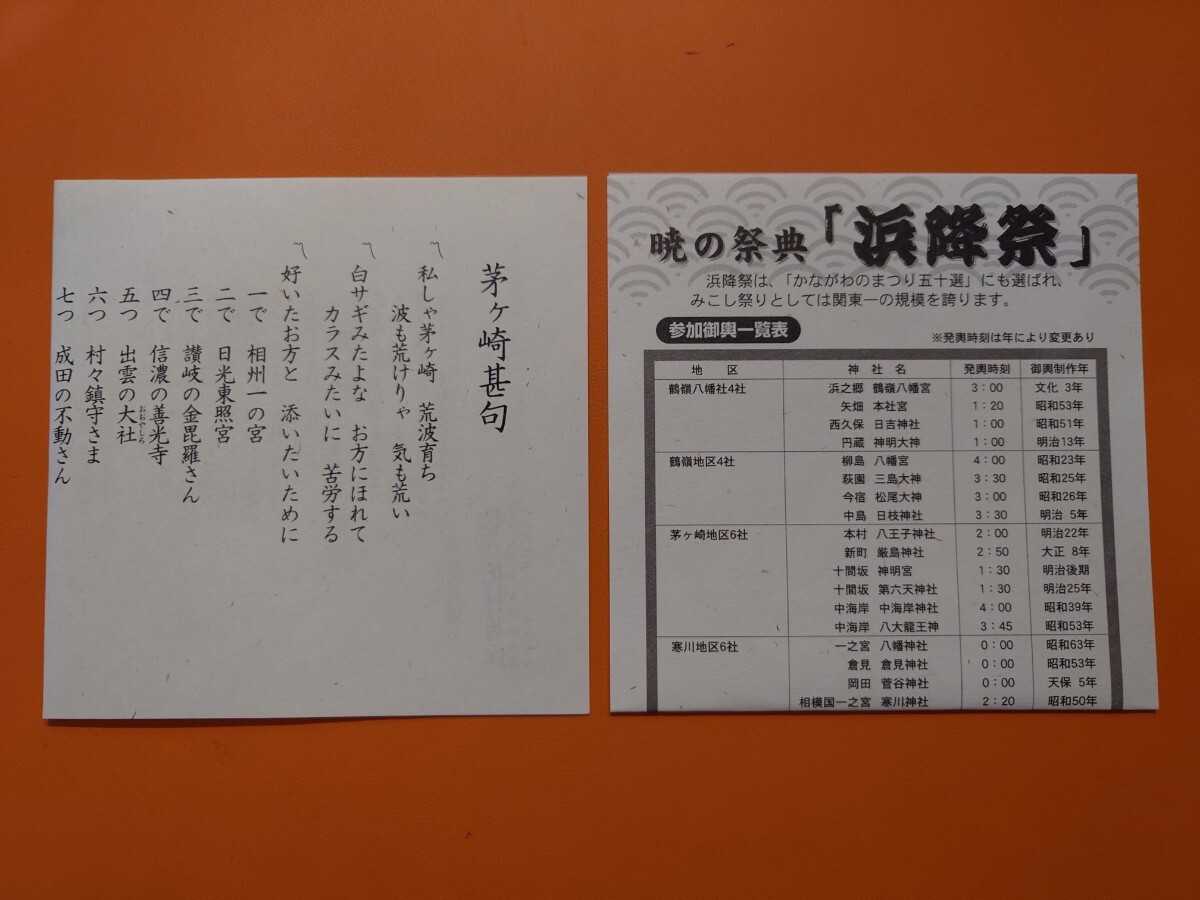 茅ヶ崎甚句
〽 私しゃ茅ヶ崎 荒波育ち
波も荒けりゃ 気も荒い
〽 白サギみたよな お方にほれて
カラスみたいに 苦労する
〽 好いたお方と 添いたいために
一で 相州一の宮
二で 日光東照宮
三で 讃岐の金毘羅さん
四で 信濃の善光寺
五つ 出雲の大社
おおやしろ
六つ 村々鎮守さま
七つ 成田の不動さん
暁の祭典「浜降祭」
浜降祭は、「かながわのまつり五十選」にも選ばれ、
みこし祭りとしては関東一の規模を誇ります。
参加御輿一覧表
※発輿時刻は年により変更あり
地区 神社名 発輿時刻 御輿制作年
鶴嶺八幡社4社 浜之郷 鶴嶺八幡宮 3:00 文化 3年
矢畑 本社宮 1:20 昭和53年
西久保 日吉神社 1:00 昭和51年
円蔵 神明大神 1:00 明治13年
鶴嶺地区4社 柳島 八幡宮 4:00 昭和23年
萩園 三島大神 3:30 昭和25年
今宿 松尾大神 3:00 昭和26年
中島 日枝神社 3:30 明治 5年
茅ヶ崎地区6社 本村 八王子神社 2:00 明治22年
新町 厳島神社 2:50 大正 8年
十間坂 神明宮 1:30 明治後期
十間坂 第六天神社 1:30 明治25年
中海岸 中海岸神社 4:00 昭和39年
中海岸 八大龍王神 3:45 昭和53年
寒川地区6社 一之宮 八幡神社 0:00 昭和63年
倉見 倉見神社 0:00 昭和53年
岡田 菅谷神社 0:00 天保 5年
相模国一之宮 寒川神社 2:20 昭和50年